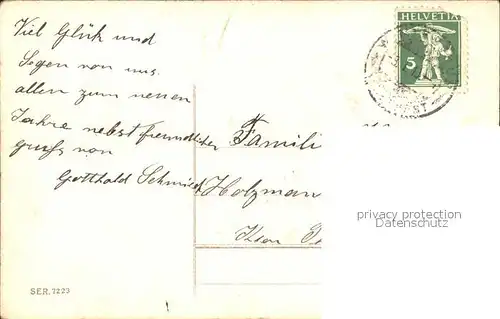 Viel Glück und
Segen von uns
allen zum neuen
Jahre nebst freundlichen
gruss von
Gotthold Schmid
Familie
Holzman
HELVETIA
5
privacy protection
Datenschutz
SER. 7223